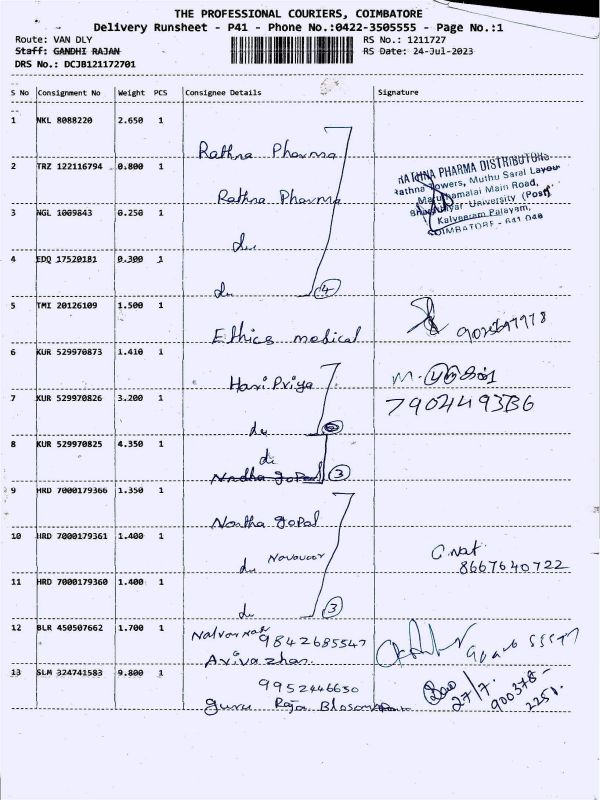 THE PROFESSIONAL COURIERS, COIMBATORE
Delivery Runsheet - P41 - Phone No.:0422-3505555 - Page No.:1
Route: VAN DLY
RS No.: 1211727
Staff: GANDHI RAJAN
RS Date: 24-Jul-2023
DRS No.: DCJB121172701
S No Consignment No Weight PCS Consignee Details Signature
1 NKL 8088220 2.650 1 Rathna Pharma
2 TRZ 122116794 0.800 1 Rathna Pharma
RATHNA PHARMA DISTRIBUTORS
Rathna Towers, Muthu Saral Layout
Maruthamalai Main Road,
Bharathiyar University (Post)
Kalveeram Palayam,
COIMBATORE - 641 046
3 NGL 1009843 0.250 1 do
4 EDQ 17520181 0.300 1 do 4
5 TMI 20126109 1.500 1 Ethics medical
6 KUR 529970873 1.410 1 Hari Priya
7 KUR 529970826 3.200 1 do
8 KUR 529970825 4.350 1 do 3
9 HRD 7000179366 1.350 1 Gopal
10 HRD 7000179361 1.400 1 do
8667640722
11 HRD 7000179360 1.400 1 do 3
12 BLR 450507662 1.700 1
9842685547
13 SLM 324741583 9.800 1
9952446630
Guru Raja
27/7.
900378-
2251.